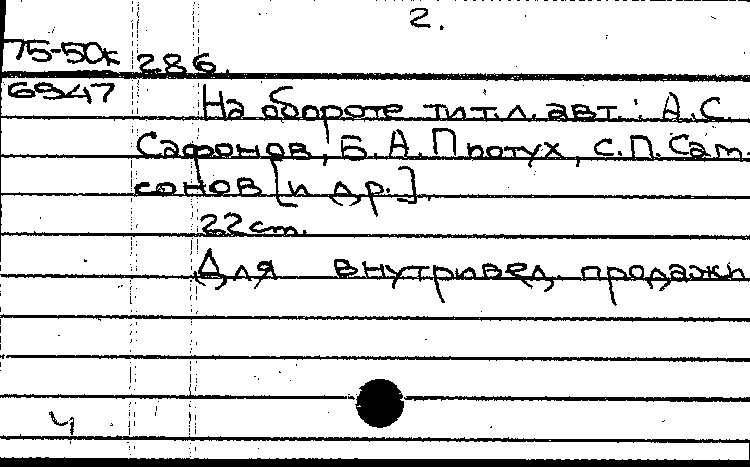 2.
75-50к 286.
6947 На обороте тит.л. авт.: А.С.
Сафонов, Б.А. Плотух, С.П. Сам-
сонов [и др.].
22cm.
Для внутривед. продажи
4